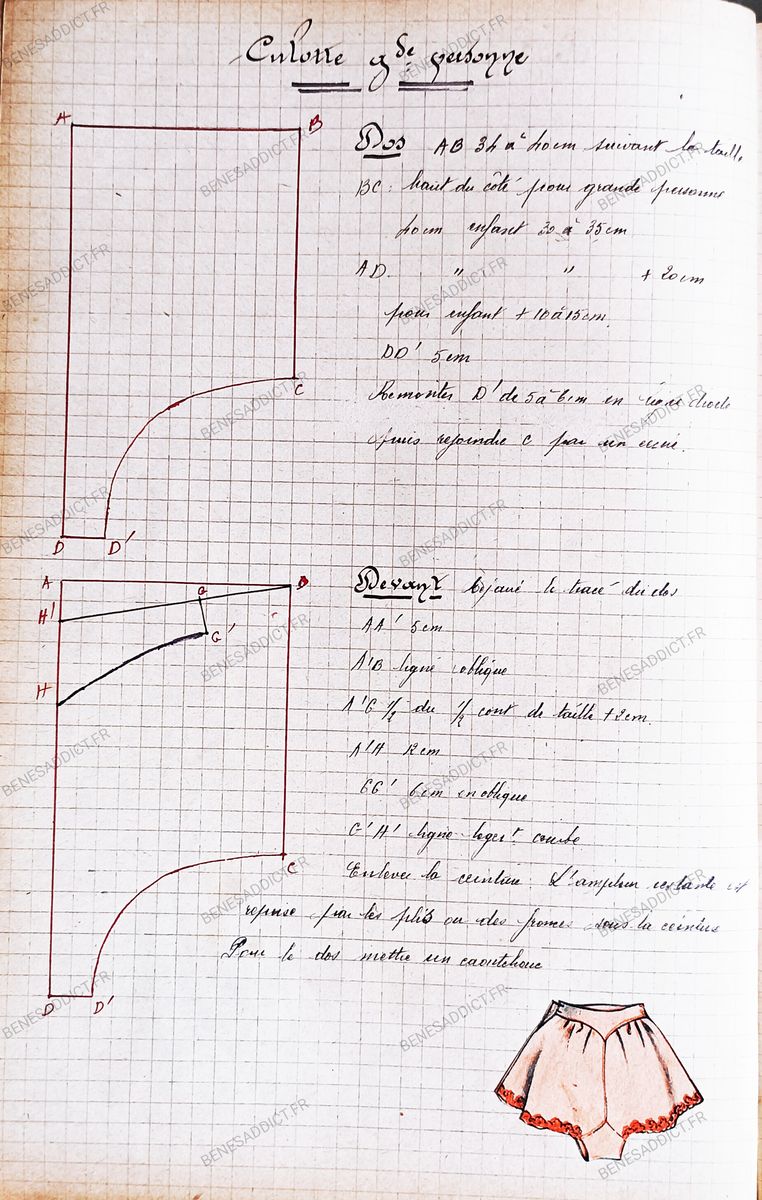 Culotte gde personne
A
B
Dos AB 34 à 40cm suivant la taille
BC: haut du côté pour grande personne
40cm enfant 30 à 35cm
AD. " " + 20cm
pour enfant + 10 à 15cm
DD' 5cm
Remonter D' de 5 à 6cm en ligne droite
puis rejoindre C par un
C
D D'
A
B
G
H'
G'
H
Devant le tracé du dos
AA' 5cm
A'B ligne oblique
A'G ½ du ½ cont de taille + 2cm.
A'H 12cm
GG' 6cm en oblique
G'H' ligne légert courbe
Enlever la ceinture. L'ampleur restante est
reprise par les plis ou des fronces sous la ceinture
Pour le dos mettre un caoutchouc
C
D D'
BENESADDICT.FR